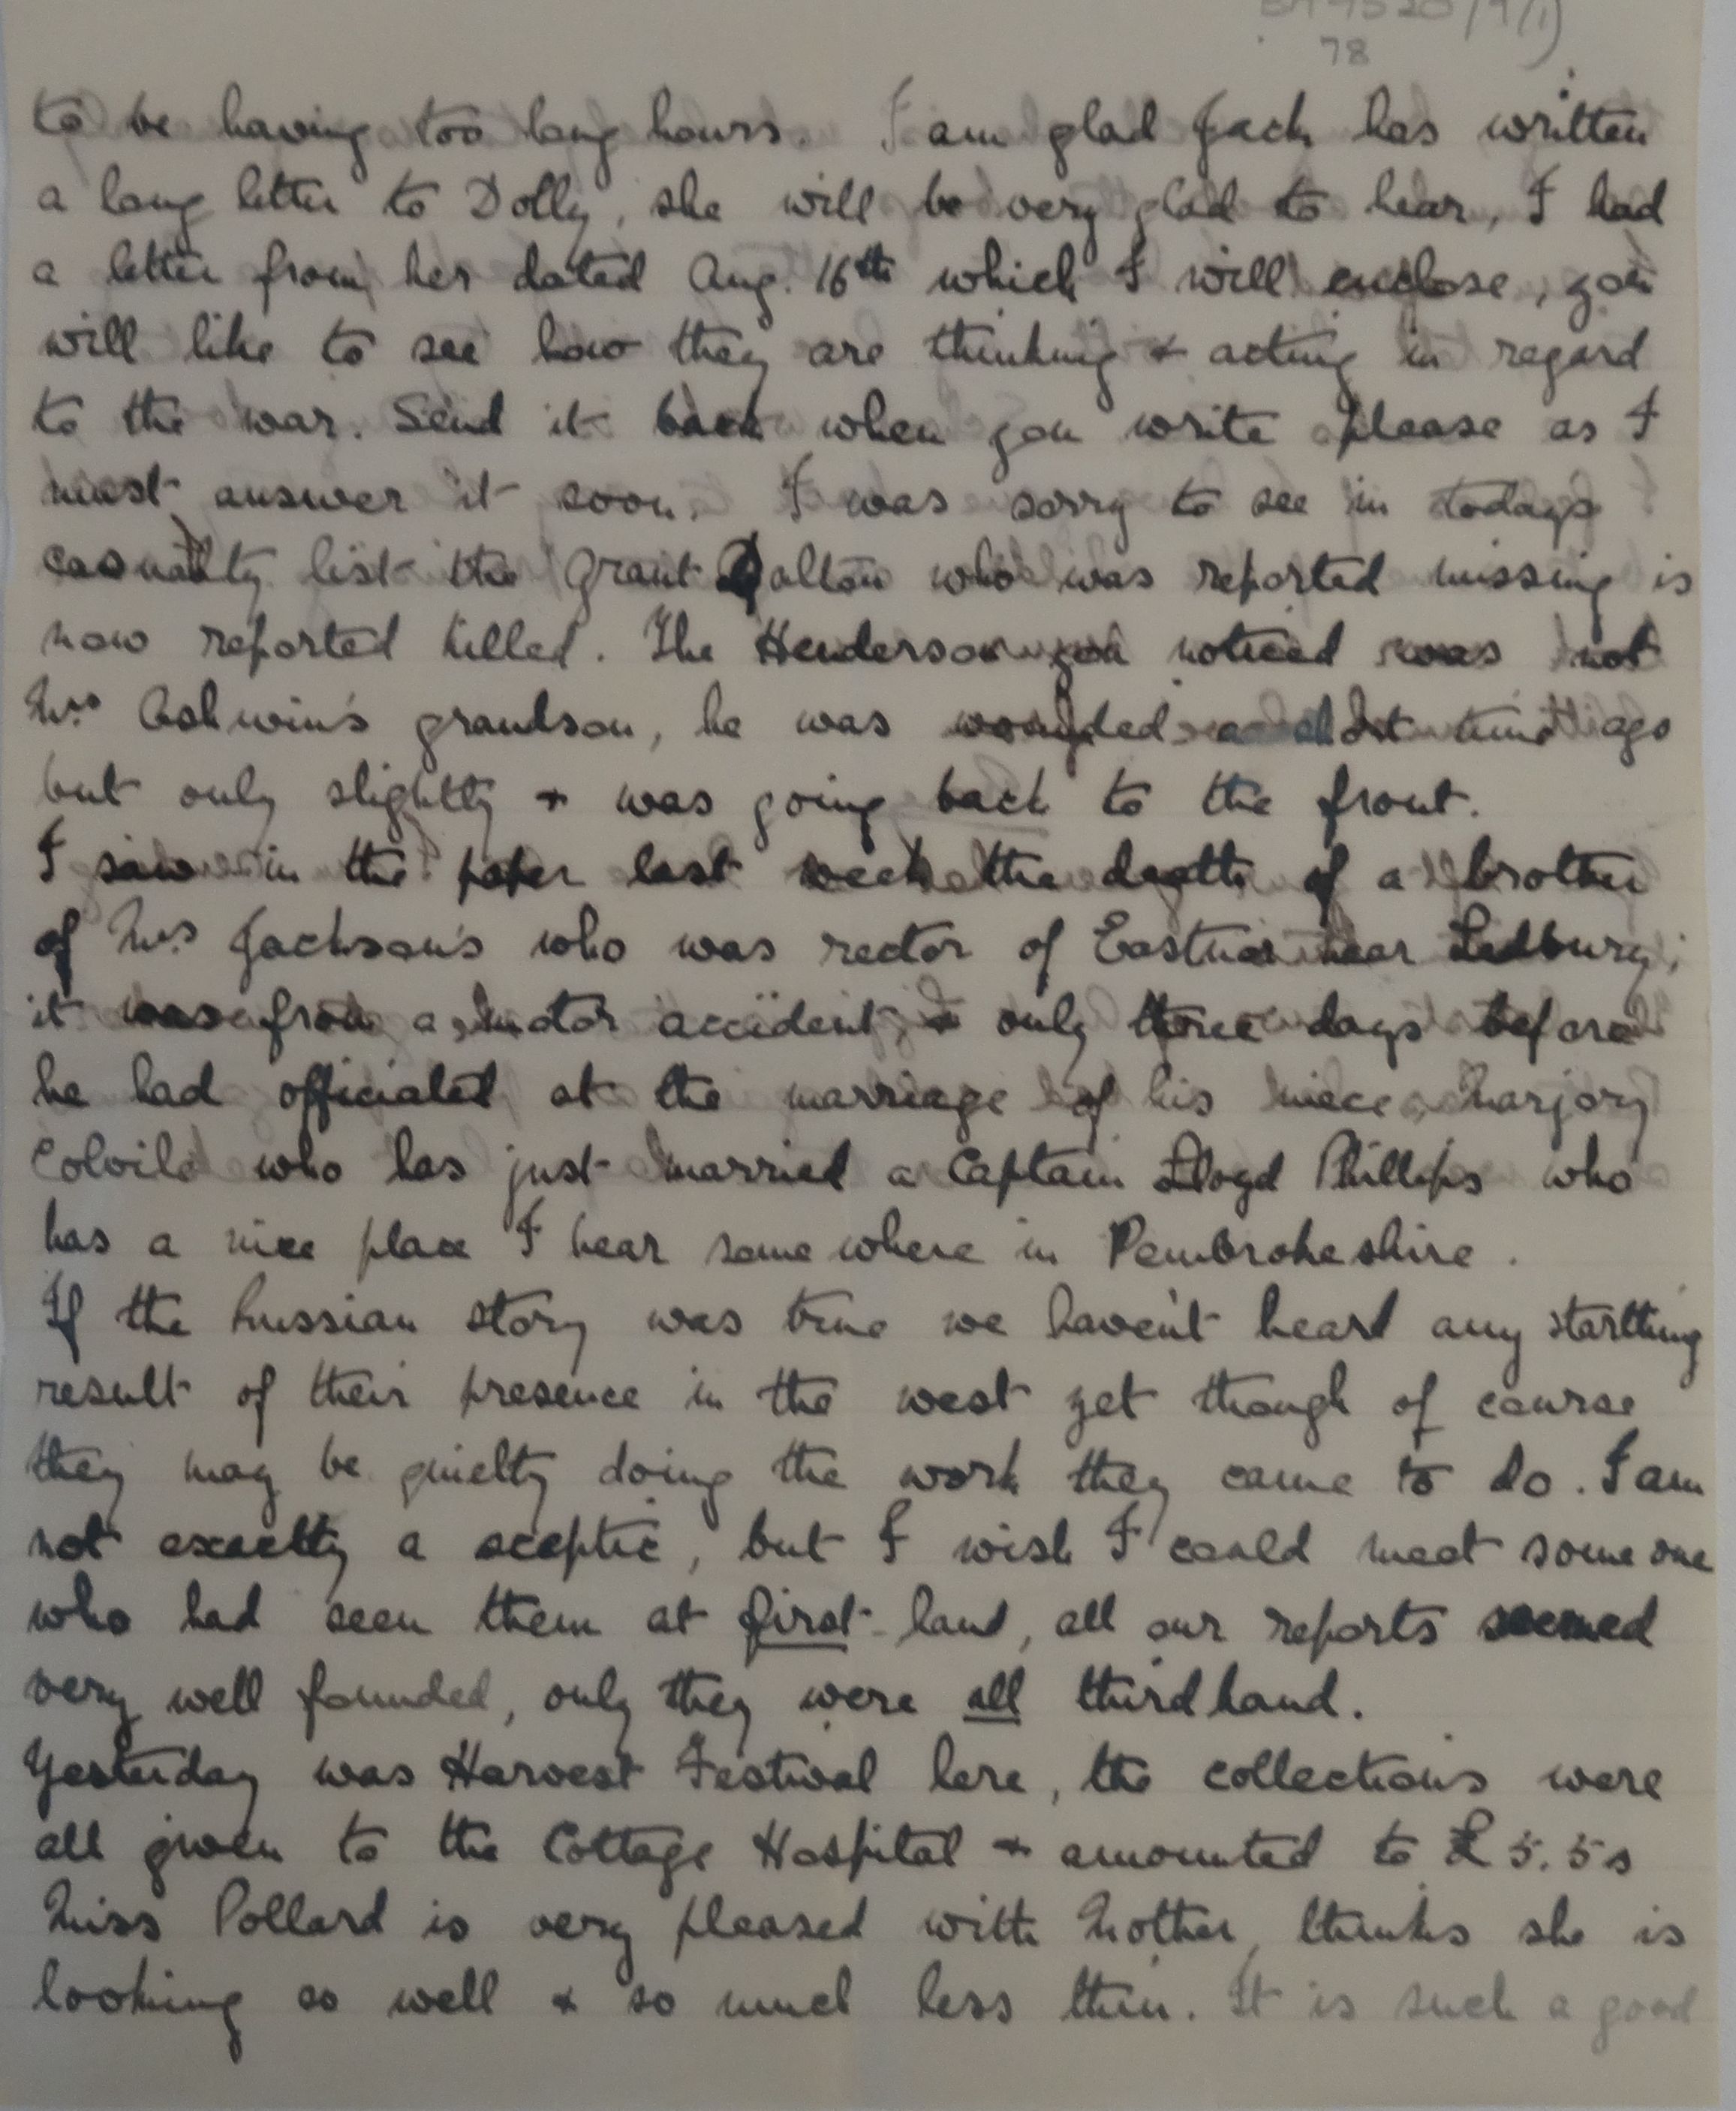 78
to be having too long hours. I am glad Jack has written
a long letter to Dolly, she will be very glad to hear, I had
a letter from her dated Aug. 16th which I will enclose, you
will like to see how they are thinking & acting in regard
to the war. Send it back when you write please as I
must answer it soon. I was sorry to see in todays
casualty list the Grant Dalton who was reported missing is
now reported killed. The Henderson you noticed was not
Mrs Ashwin's grandson, he was wounded a short time ago
but only slightly & was going back to the front.
I saw in the paper last week the death of a brother
of Mrs Jackson's who was rector of Eastnor near Ledbury;
it was from a motor accident & only three days before
he had officiated at the marriage of his niece, Marjory
Colvile who has just married a Captain Lloyd Phillips who
has a nice place I hear somewhere in Pembrokeshire.
If the Russian story was true we haven't heard any startling
result of their presence in the west yet though of course
they may be quietly doing the work they came to do. I am
not exactly a sceptic, but I wish I could meet some one
who had seen them at first-hand, all our reports seemed
very well founded, only they were all third hand.
Yesterday was Harvest Festival here, the collections were
all given to the Cottage Hospital & amounted to £5.5s
Miss Pollard is very pleased with Mother, thinks she is
looking so well & so much less thin. It is such a good